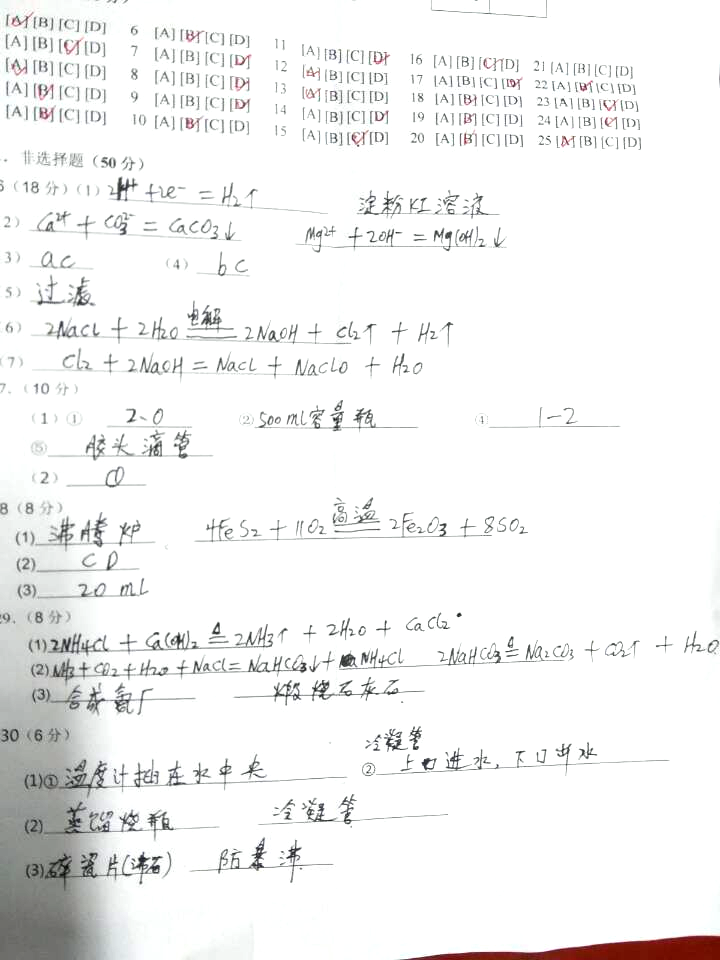 [A] [B] [C] [D] 6 [A] [B] [C] [D] 11 [A] [B] [C] [D] 16 [A] [B] [C] [D] 21 [A] [B] [C] [D]
[A] [B] [C] [D] 7 [A] [B] [C] [D] 12 [A] [B] [C] [D] 17 [A] [B] [C] [D] 22 [A] [B] [C] [D]
[A] [B] [C] [D] 8 [A] [B] [C] [D] 13 [A] [B] [C] [D] 18 [A] [B] [C] [D] 23 [A] [B] [C] [D]
[A] [B] [C] [D] 9 [A] [B] [C] [D] 14 [A] [B] [C] [D] 19 [A] [B] [C] [D] 24 [A] [B] [C] [D]
[A] [B] [C] [D] 10 [A] [B] [C] [D] 15 [A] [B] [C] [D] 20 [A] [B] [C] [D] 25 [A] [B] [C] [D]
. 非选择题（50 分）
6（18 分）(1) 2H⁺ +2e⁻ = H₂↑ 淀粉KI溶液
2） Ca²⁺ + CO₃²⁻ = CaCO₃↓ Mg²⁺ +2OH⁻ = Mg(OH)₂↓
3） ac （4） bc
5） 过滤
(6) 2NaCl + 2H₂O 电解 2NaOH + Cl₂↑ + H₂↑
(7) Cl₂ + 2NaOH = NaCl + NaClO + H₂O
7.（10 分）
（1）① 2.0 ② 500ml容量瓶 ④ 1-2
⑤ 胶头滴管
（2） ①
8（8 分）
(1) 沸腾炉 4FeS₂ + 11O₂ 高温 2Fe₂O₃ + 8SO₂
(2) CD
(3) 20 ml
29.（8 分）
(1) 2NH₄Cl + Ca(OH)₂ △= 2NH₃↑ + 2H₂O + CaCl₂
(2) NH₃ + CO₂ + H₂O + NaCl = NaHCO₃↓ + NH₄Cl 2NaHCO₃ △= Na₂CO₃ + CO₂↑ + H₂O
(3) 合成氨厂 煅烧石灰石
30（6 分）
冷凝管
(1)① 温度计插在水中央 ② 上口进水，下口出水
(2) 蒸馏烧瓶 冷凝管
(3) 碎瓷片(沸石) 防暴沸